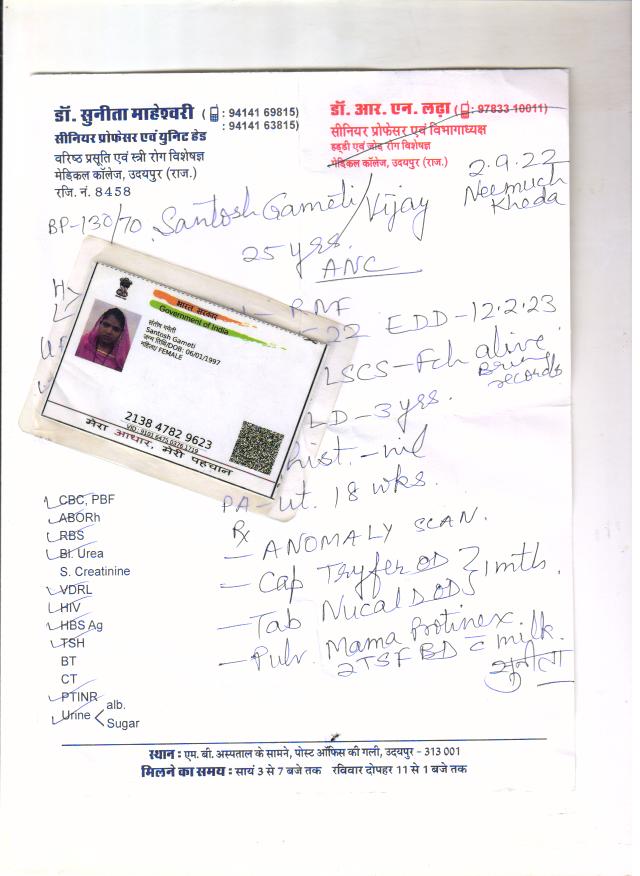 डॉ. सुनीता माहेश्वरी ( : 94141 69815)
: 94141 63815)
सीनियर प्रोफेसर एवं युनिट हेड
वरिष्ठ प्रसूति एवं स्त्री रोग विशेषज्ञ
मेडिकल कॉलेज, उदयपुर (राज.)
रजि. नं. 8458
डॉ. आर. एन. लढ़ा ( : 97833 10011)
सीनियर प्रोफेसर एवं विभागाध्यक्ष
हड्डी एवं जोड़ रोग विशेषज्ञ
मेडिकल कॉलेज, उदयपुर (राज.)
2.9.22
Neemuch
Kheda
BP-130/70 Santosh Gameti/Vijay
25 yrs.
ANC
भारत सरकार
Government of India
संतोष गमेती
Santosh Gameti
जन्म तिथि/DOB: 06/01/1997
महिला/ FEMALE
2138 4782 9623
VID : 9101 6475 0376 1719
मेरा आधार, मेरी पहचान
22 EDD-12.2.23
LSCS-Fch alive
Bring
records
LD-3 yrs.
hist.-nil
PA-ut. 18 wks.
CBC, PBF
ABORh
RBS
Bl. Urea
S. Creatinine
VDRL
HIV
HBS Ag
TSH
BT
CT
PTINR
Urine < alb.
Sugar
Rx
- ANOMALY SCAN.
- Cap Tryfer OD } 1 mth.
- Tab Nucal D OD
- Pulv. Mama Protinex.
2TSF BD c milk.
सुनीता
स्थान : एम. बी. अस्पताल के सामने, पोस्ट ऑफिस की गली, उदयपुर - 313 001
मिलने का समय : सायं 3 से 7 बजे तक रविवार दोपहर 11 से 1 बजे तक